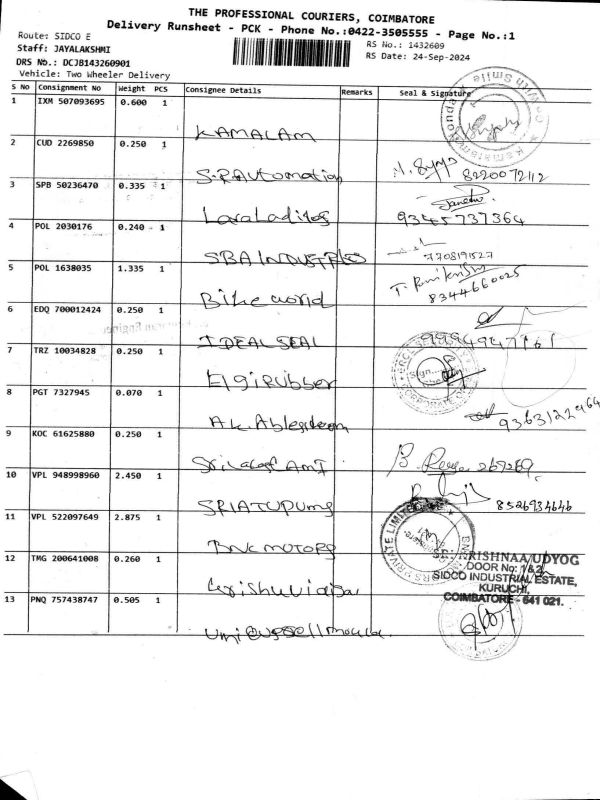 THE PROFESSIONAL COURIERS, COIMBATORE
Delivery Runsheet - PCK - Phone No.:0422-3505555 - Page No.:1
Route: SIDCO E
RS No.: 1432609
Staff: JAYALAKSHMI
RS Date: 24-Sep-2024
DRS No.: DCJB143260901
Vehicle: Two Wheeler Delivery
S No Consignment No Weight PCS Consignee Details Remarks Seal & Signature
1 IXM 507093695 0.600 1
KAMALAM
2 CUD 2269850 0.250 1
S.R Automation 8220072112
3 SPB 50236470 0.335 1
9345737364
4 POL 2030176 0.240 1
SBA INDUSTRIES 7708191527
5 POL 1638035 1.335 1
Bike world 8344660025
6 EDQ 700012424 0.250 1
IDEAL SEAL 9994947161
7 TRZ 10034828 0.250 1
Elgi Rubber
8 PGT 7327945 0.070 1
9363122964
9 KOC 61625880 0.250 1
267269
10 VPL 948998960 2.450 1
8526934646
11 VPL 522097649 2.875 1
BNK MOTORS
SRI KRISHNAA UDYOG
12 TMG 200641008 0.260 1
DOOR No: 1&2,
SIDCO INDUSTRIAL ESTATE,
KURUCHI,
13 PNQ 757438747 0.505 1
COIMBATORE - 641 021.